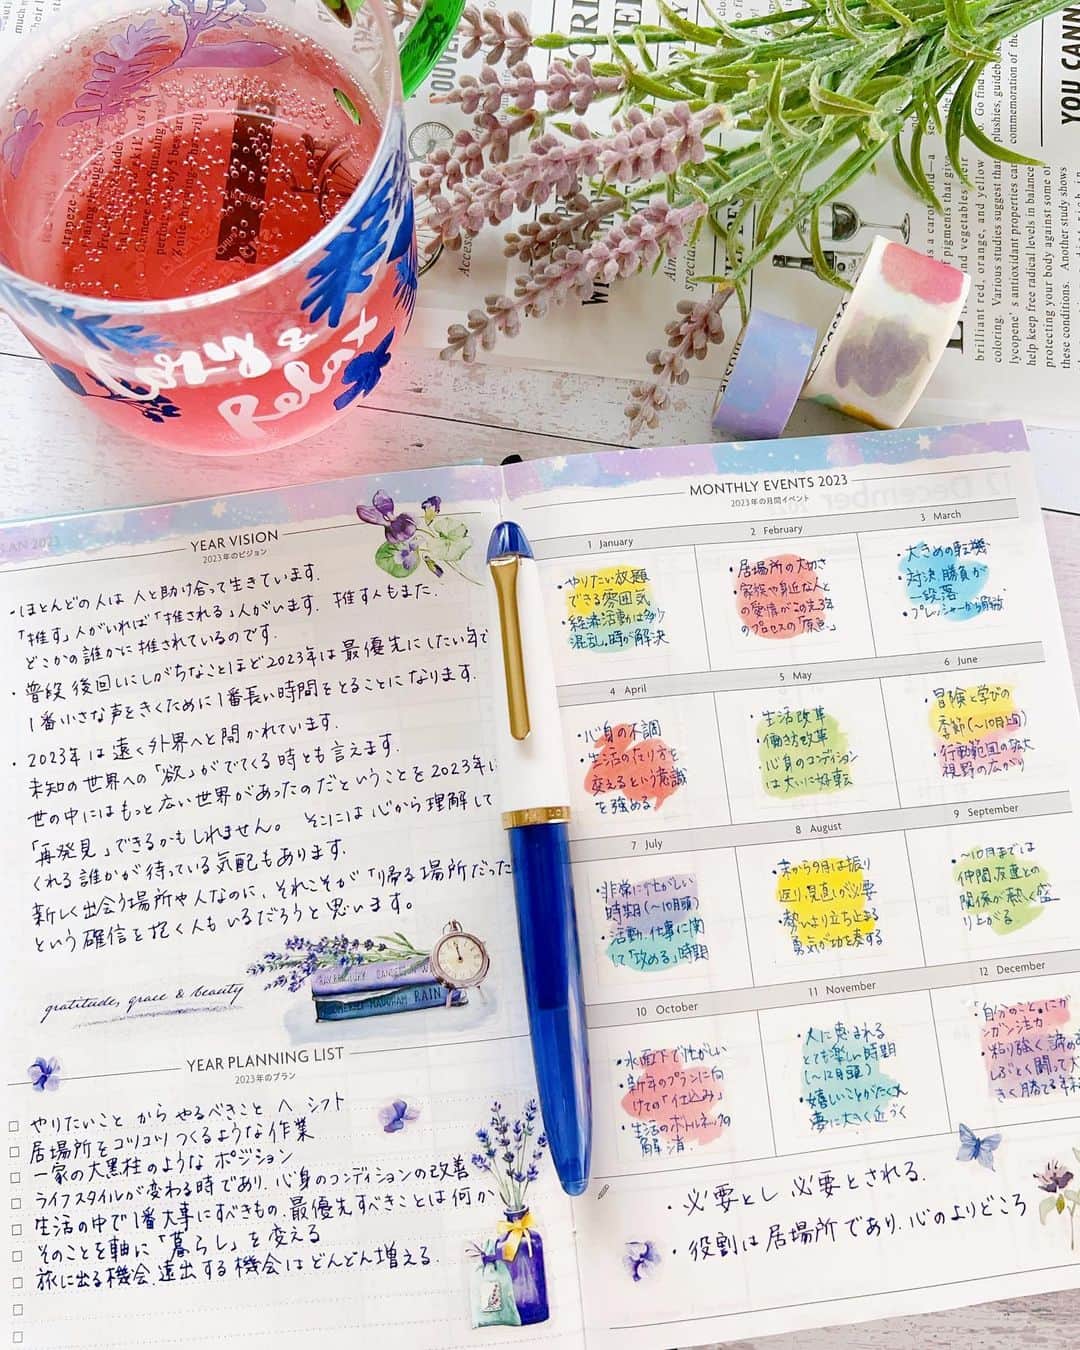 YEAR VISION
2023年のビジョン
・ほとんどの人は 人と助け合って生きています.
「推す」人がいれば「推される」人がいます. 推す人もまた.
どこかの誰かに推されているのです.
・普段 後回しにしがちなことほど2023年は最優先にしたい年で
1番小さな声をきくために1番長い時間をとることになります.
・2023年は遠く外界へと開かれています.
未知の世界への「欲」がでてくる時とも言えます.
世の中にはもっと広い世界があったのだということを2023年に
「再発見」できるかもしれません。 そこには心から理解して
くれる誰かが待っている気配もあります.
新しく出会う場所や人なのに、それこそが「帰る場所だった
という確信を抱く人もいるだろうと思います。
gratitude, grace & beauty
RAIN
YEAR PLANNING LIST
2023年のプラン
やりたいこと から やるべきこと へ シフト
居場所をコツコツつくるような作業
一家の大黒柱のような ポジション
ライフスタイルが変わる時であり. 心身のコンディションの改善
生活の中で1番大事にすべきもの. 最優先すべきことは何か
そのことを軸に「暮らし」を変える
旅に出る機会. 遠出する機会はどんどん増える.
MONTHLY EVENTS 2023
2023年の月間イベント
1 January
・やりたい放題
できる雰囲気
・経済活動は多少
混乱. 時が解決
2 February
・居場所の大切さ
・家族や身近な人と
の愛情がこの先3年
のプロセスの「原色」
3 March
・大きめの転機
・対決. 勝負が
一段落
・プレッシャーから解放
4 April
・心身の不調
・生活の在り方を
変えるという意識
を強める
5 May
・生活改革
・働き方改革
・心身のコンディション
は大いに好転
6 June
・冒険と学びの
季節(〜10月上旬)
・行動範囲の拡大
視野の広がり
7 July
・非常に忙しい
時期(〜10月頭)
・活動. 仕事に関
して「攻める」時期
8 August
・末から9月は振り
返り. 見直しが必要
・勢いより立ち止まる
勇気が功を奏する
9 September
・〜10月までは
仲間. 友達との
関係が熱く盛
り上がる
10 October
・水面下で忙しい
・新年のプランに向
けての「仕込み」
・生活のボトルネックの
解消.
11 November
・人に恵まれる
とても楽しい時期
(〜12月頭)
・嬉しいことがたくさん
夢に大きく近づく
12 December
「自分のこと」にガ
ンガン注力
・粘り強く 諦め
しぶとく闘って大
きく勝てる年
・必要とし 必要とされる.
・役割は居場所であり. 心のよりどころ
YOU CANN
brilliant red, orange, and yellow
coloring. Various studies suggest that
lycopene's antioxidant properties can
help keep free radical levels in balance
protecting your body against some of
these conditions. Another study shows